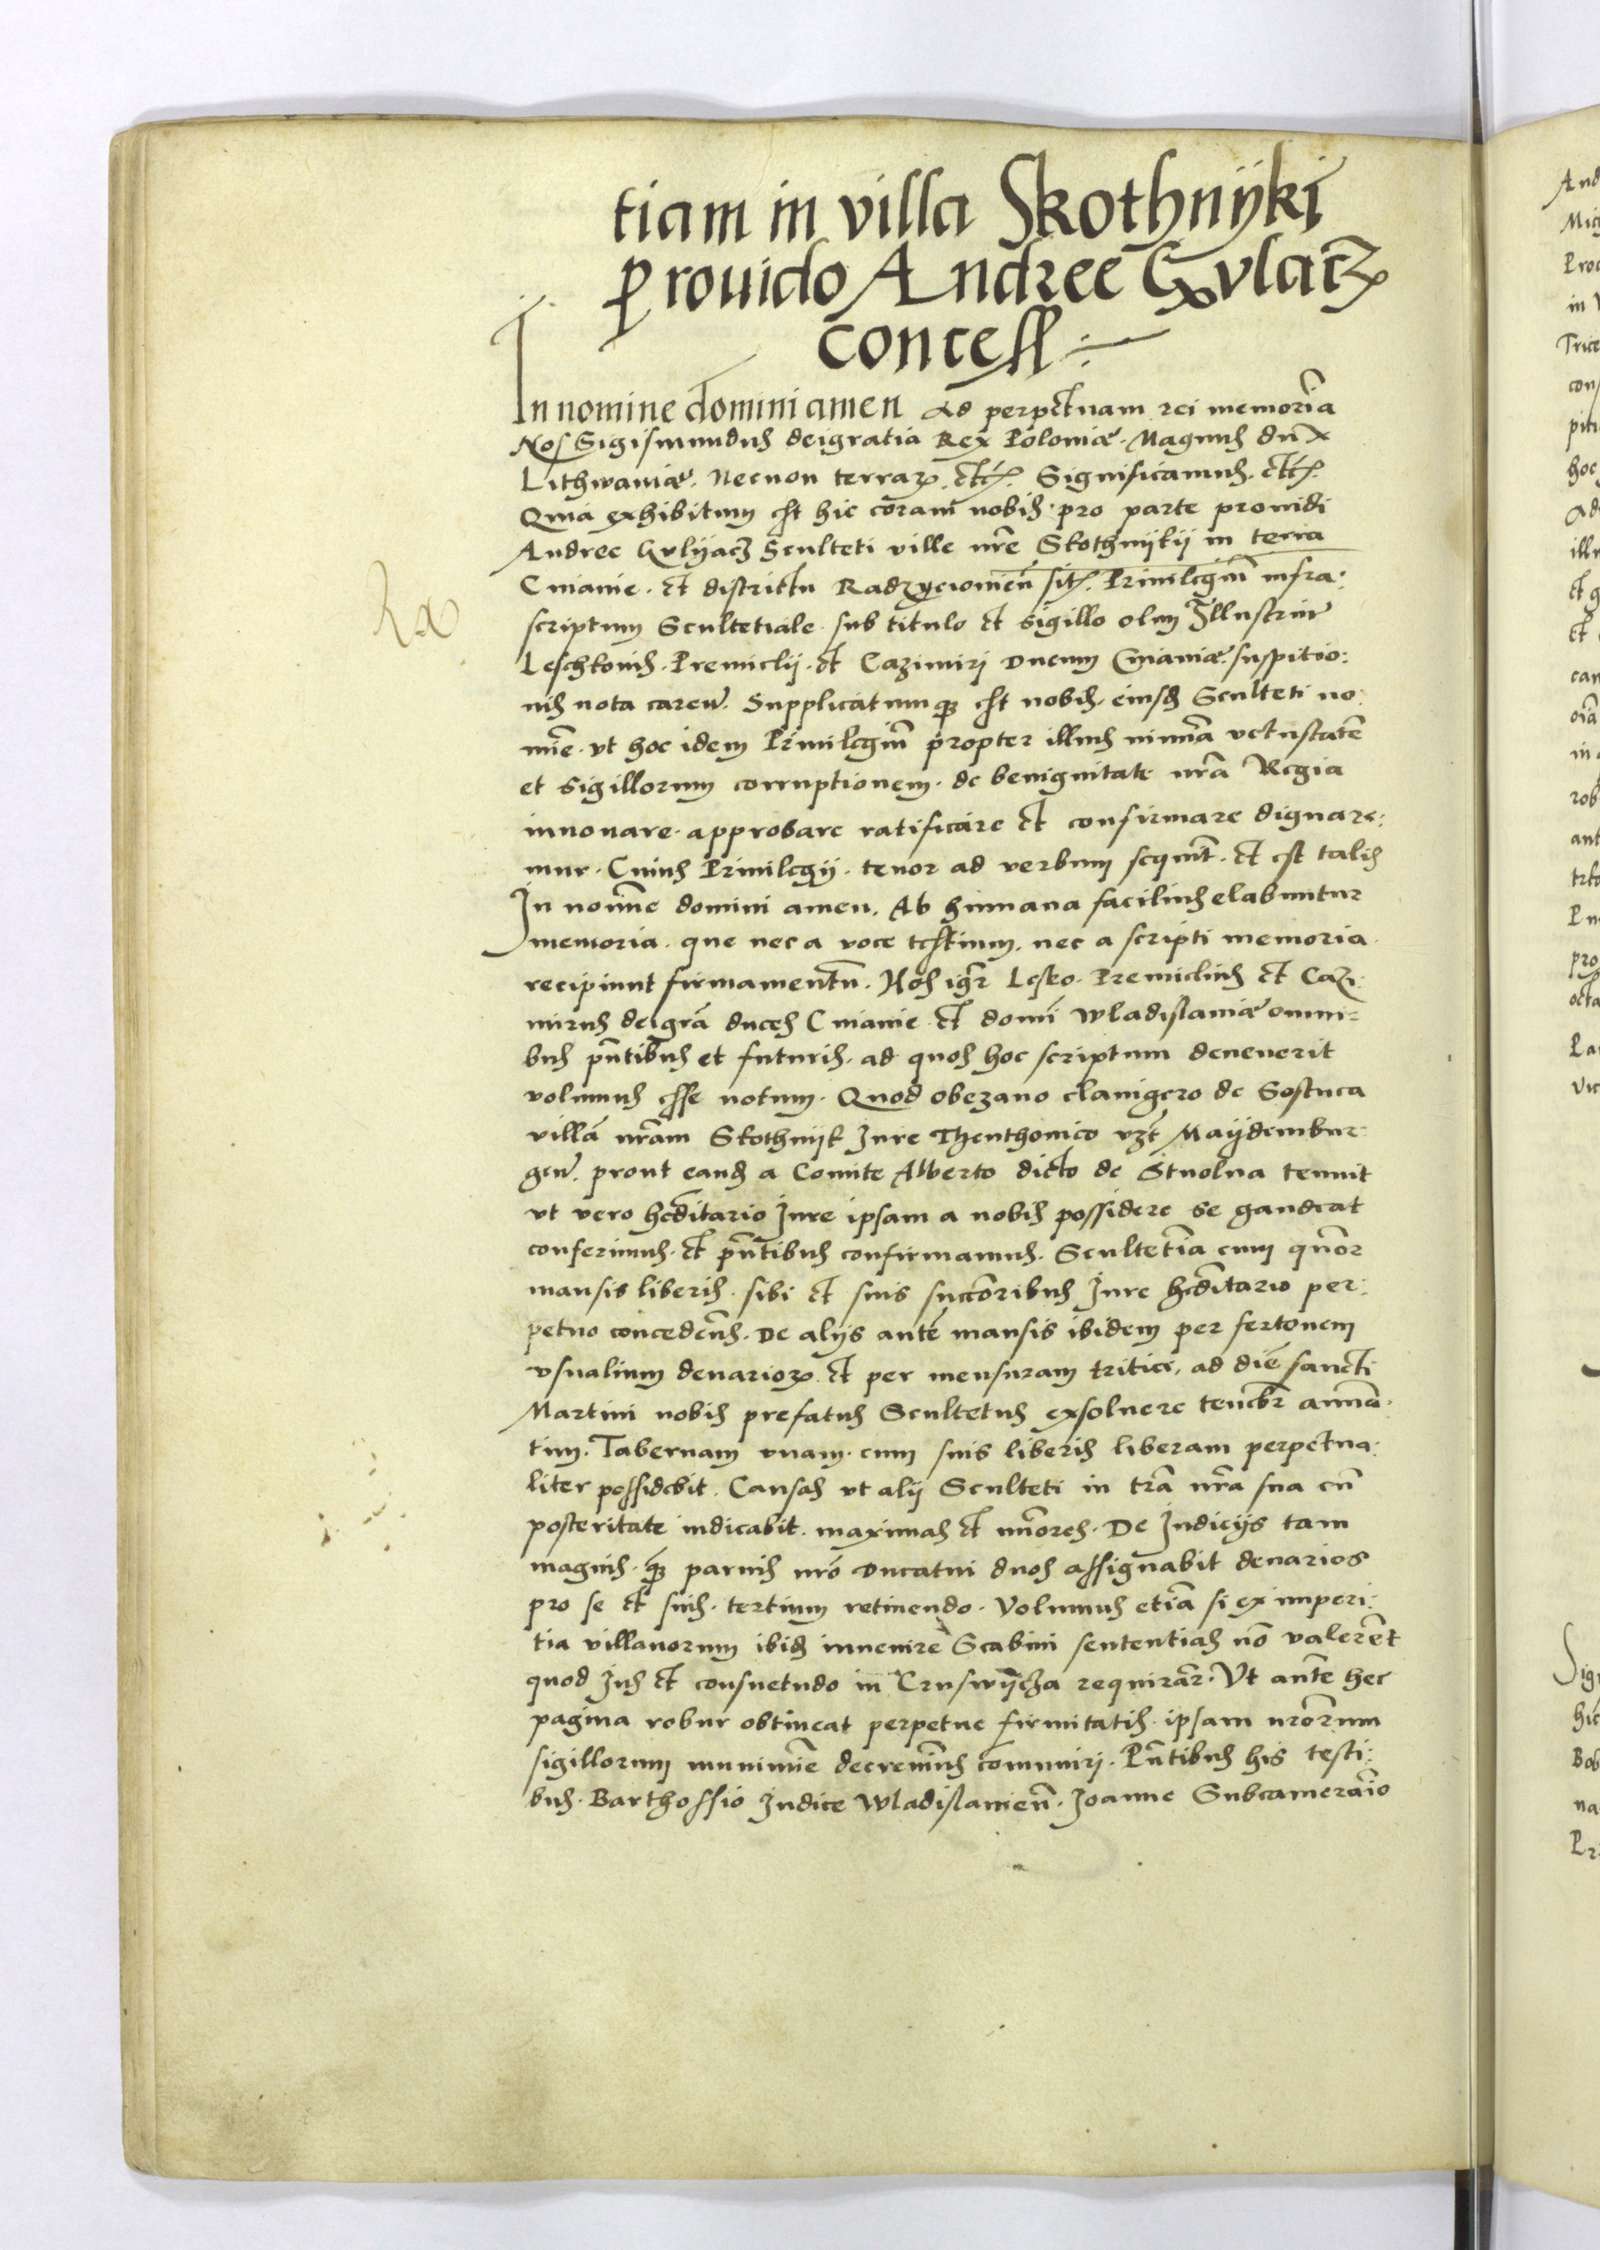 tiam in villa Skothnÿki
Prouido Andree Gxvlacz
concess
In nomine domini amen Ad perpetuam rei memoria
Nos Sigismundus dei gratia Rex Poloniæ. Magnus dux
Lithwaniæ. Necnon terrar. etc. Significamus. etc.
Quia exhibitum est hic coram nobis. pro parte prouidi
Andree Gvlÿacz Sculteti ville nre Skothnÿkÿ in terra
Cuiauie. et districtu Radzÿeiouien sit. Priuilegiu infra:
scriptum Scultetiale. sub titulo et sigillo olim Illustriu
Leschkonis. Premislÿ. et Cazimiri Ducum Cuiauiæ. suspitio:
nis nota caren. Supplicatumq est nobis. eiusd Sculteti no:
mie. vt hoc idem Priuilegiu propter illius nimia vetustate
et sigillorum corruptionem. de benignitate nra Regia
innouare. approbare ratificare et confirmare dignare:
mur. Cuius Priuilegÿ. tenor ad verbum sequit. et est talis
In nomine domini amen. Ab humana facilius elabuntur
memoria. que nec a voce testium. nec a scripti memoria.
recipiunt firmamentu. Nos igr Lesko. Premislius et Cazi:
mirus dei gra duces Cuiauie. et domi Wladislauiæ omni=
bus pntibus et futuris. ad quos hoc scriptum deuenerit
volumus esse notum. Quod obezano clauigero de Sostuca
villa nram Skothnÿk Iure Thenthonico vzt Maÿdembur:
gen. prout eand a Comite Alberto dicto de Stuolna tenuit
vt vero heditario Iure ipsam a nobis possidere se gaudeat
conferimus. et pntibus confirmamus. Scultetia cum quor
mansis liberis. sibi et suis succoribus Iure heditario per:
petuo concedens. De alÿs aute mansis ibidem per fertonem
vsualium denarior. et per mensuram tritici, ad die sancti
Martini nobis prefatus Scultetus exsoluere tenebr annua:
tim. Tabernam vnam. cum suis liberis liberam perpetua:
liter possidebit. Causas vt alÿ Sculteti in tra nra sua cu
posteritate iudicabit. maximas et miores. De Iudicÿs tam
magnis. q paruis nro Ducatui duos assignabit denarios
pro se et suis. tertium retinendo. Volumus etia si ex imperi:
tia villanorum ibid inuenire Scabini sententias no valeret
quod Ius et consuetudo in Cruswÿcza requirar. Vt aute hec
pagina robur obtineat perpetue firmitatis. ipsam nrorum
sigillorum munimie decreuimus comuniri. Pntibus his testi:
bus. Barthossio Iudice Wladislauien. Ioanne Subcamerario